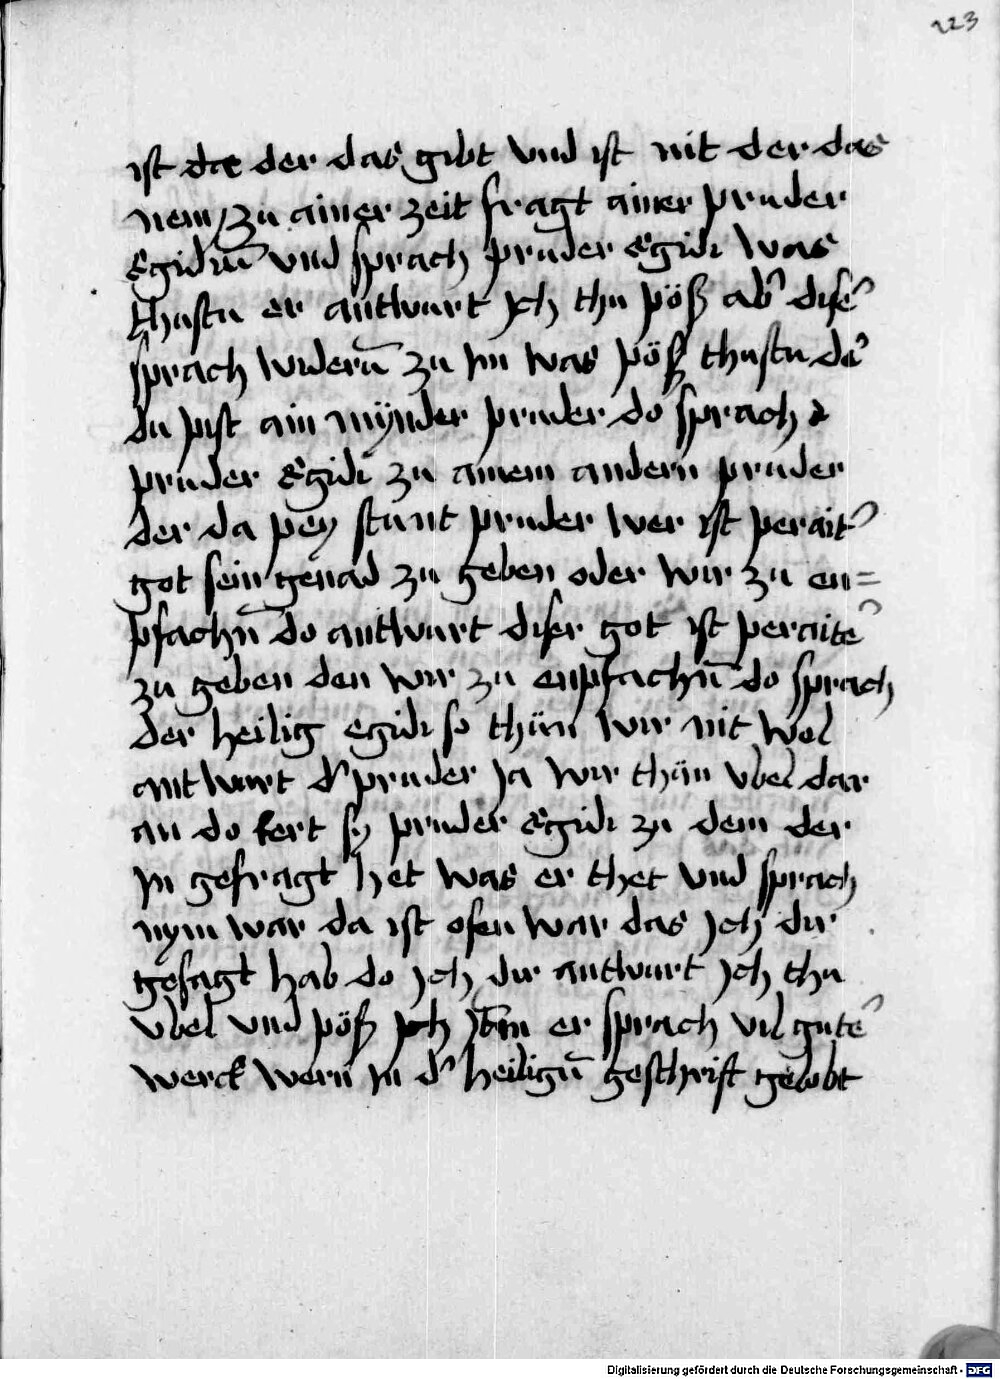 223
ist da der das gibt vnd ist nit der das
nem / zu ainer zeit fragt ainer pruder
Egidiū vnd sprach pruder Egidi was
thustu er antwurt Jch thu pöß ab̉ disẻ
sprach widerū zu im was pöß thustu dẻ
du pist ain mÿnder pruder do sprach
pruder Egidi zu ainem andern pruder
der da pey stunt pruder wer ist peraitẻ
got sein genad zu geben oder wir zu en=
pfachn̄ do antwurt diser got ist peraitẻ
zu geben den wir zu enpfachn̄ do sprach
der heilig egidi so thün wir nit wol
antwurt d̉ pruder Ja wir thün vbel dar
an do kert sy pruder Egidi zu dem der
in gefragt het was er thet vnd sprach
nym war da ist ofen war das Jch dir
gesagt hab do Jch dir antwurt Jch thu
vbel vnd pöß Jtm er sprach vil gutẻ
werck wern in d̉ heilign̄ geschrift gelobt
Digitalisierung gefördert durch die Deutsche Forschungsgemeinschaft - DFG